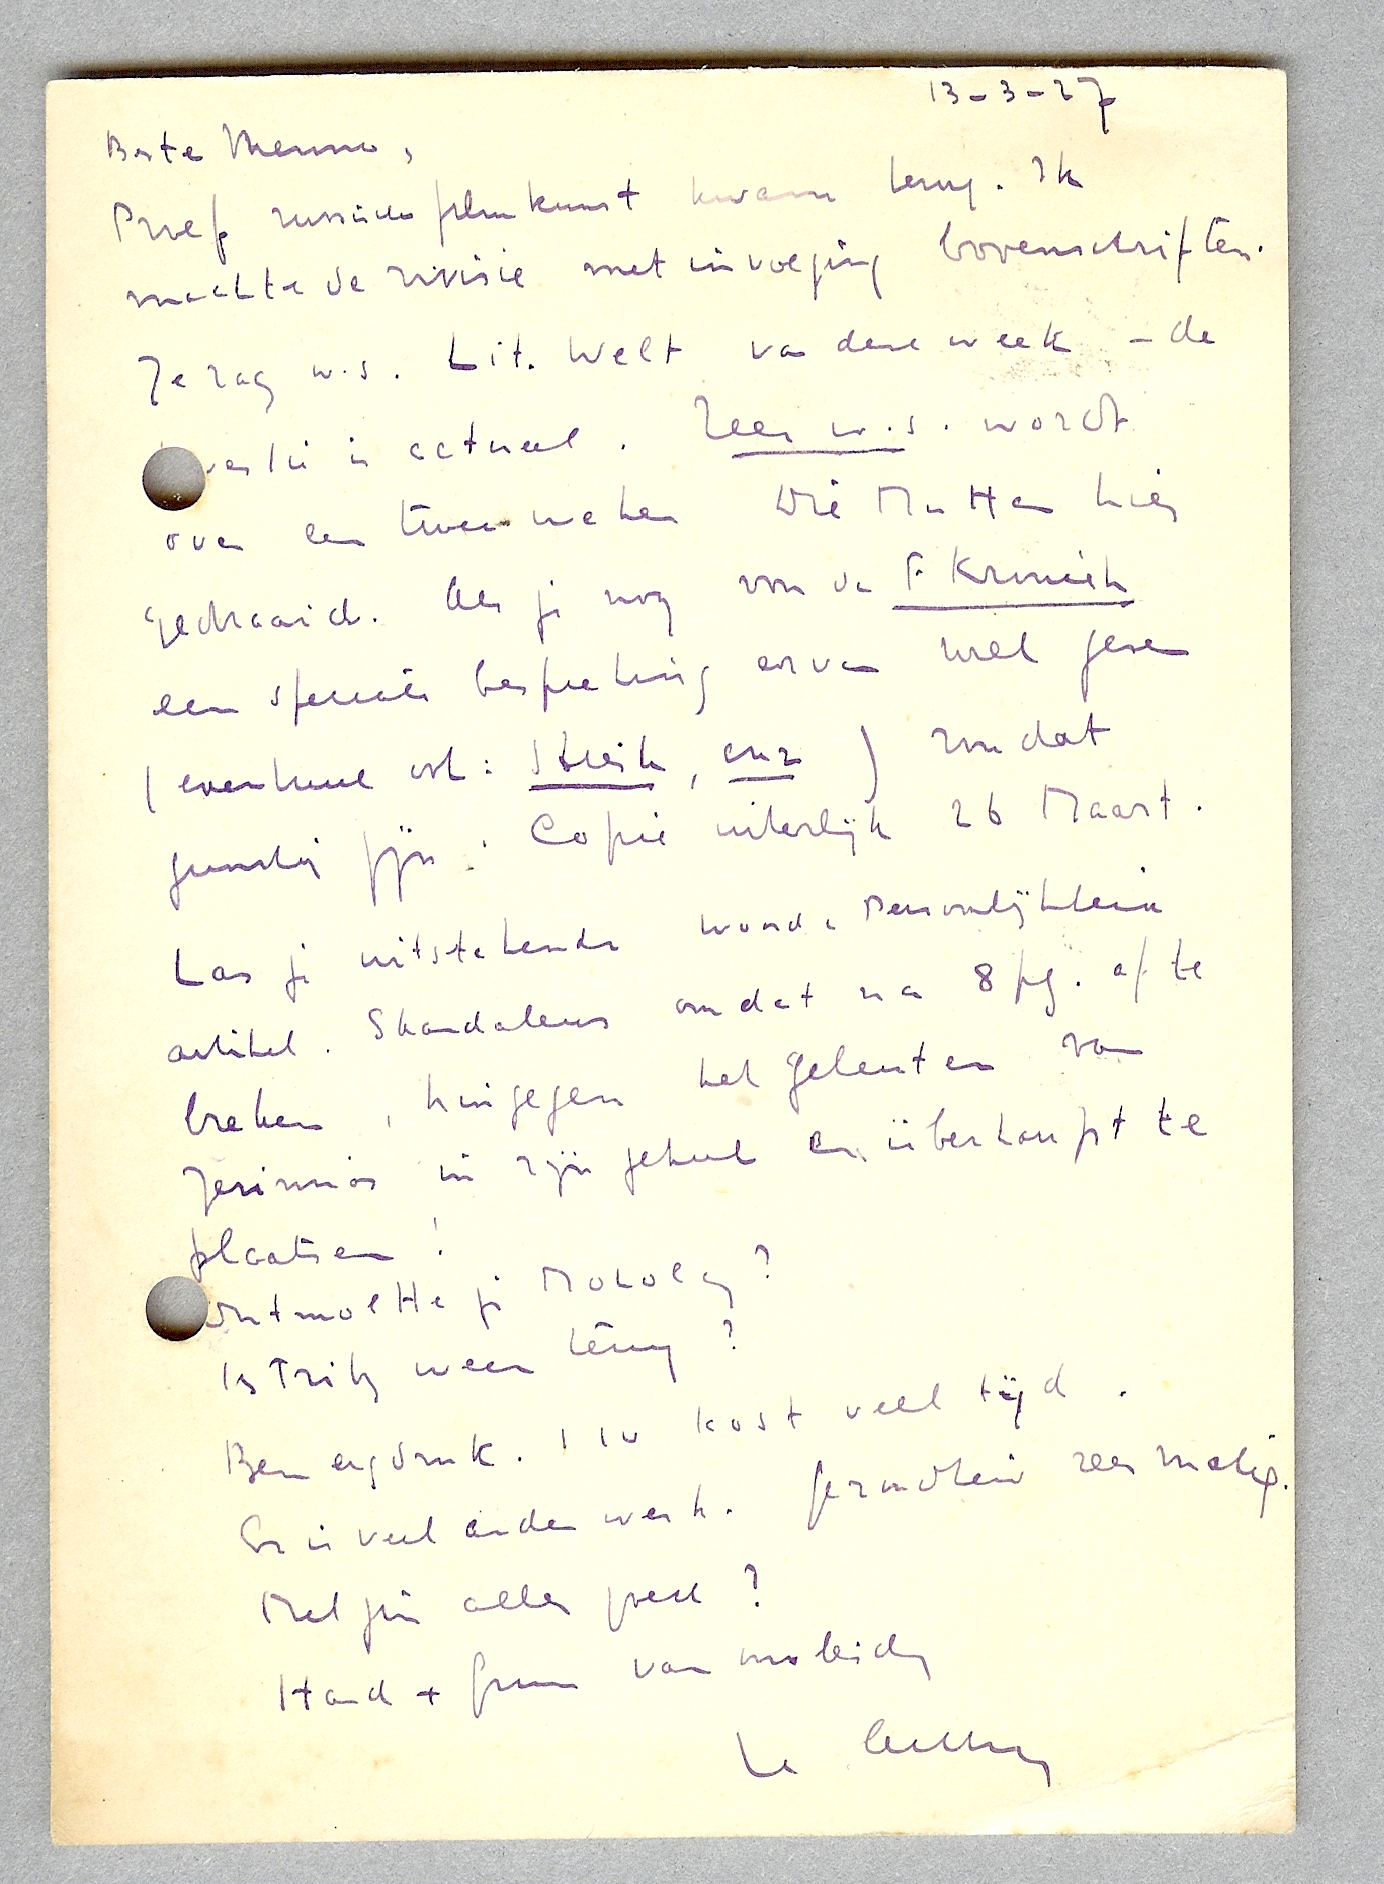 13-3-27
Beste Menno,
Proef russische filmkunst kwam terug. Ik
maakte de revisie met invoeging bovenschriften.
Je zag w.s. Lit. Welt van deze week – de
kwestie is actueel. Zeer w.s. wordt
over een twee weken Die Mutter hier
gedraaid. Als je nog voor de F. Kroniek
een speciale bespreking ervan wil geven
(eventueel ook: Streik, enz) zou dat
gunstig zijn. Copie uiterlijk 26 Maart.
Las je uitstekende Persoonlijkheid
artikel. Skandaleus omdat na 8 pg. af te
breken, hingegen het van
in zijn geheel en überhaupt te
plaatsen!
Ontmoette je Moholy?
Is Frits weer terug?
Ben erg druk. i 10 kost veel tijd.
Er is veel ander werk. Gezondheid zeer matig.
Met jou alles goed?
Hand + groet van ons beide,